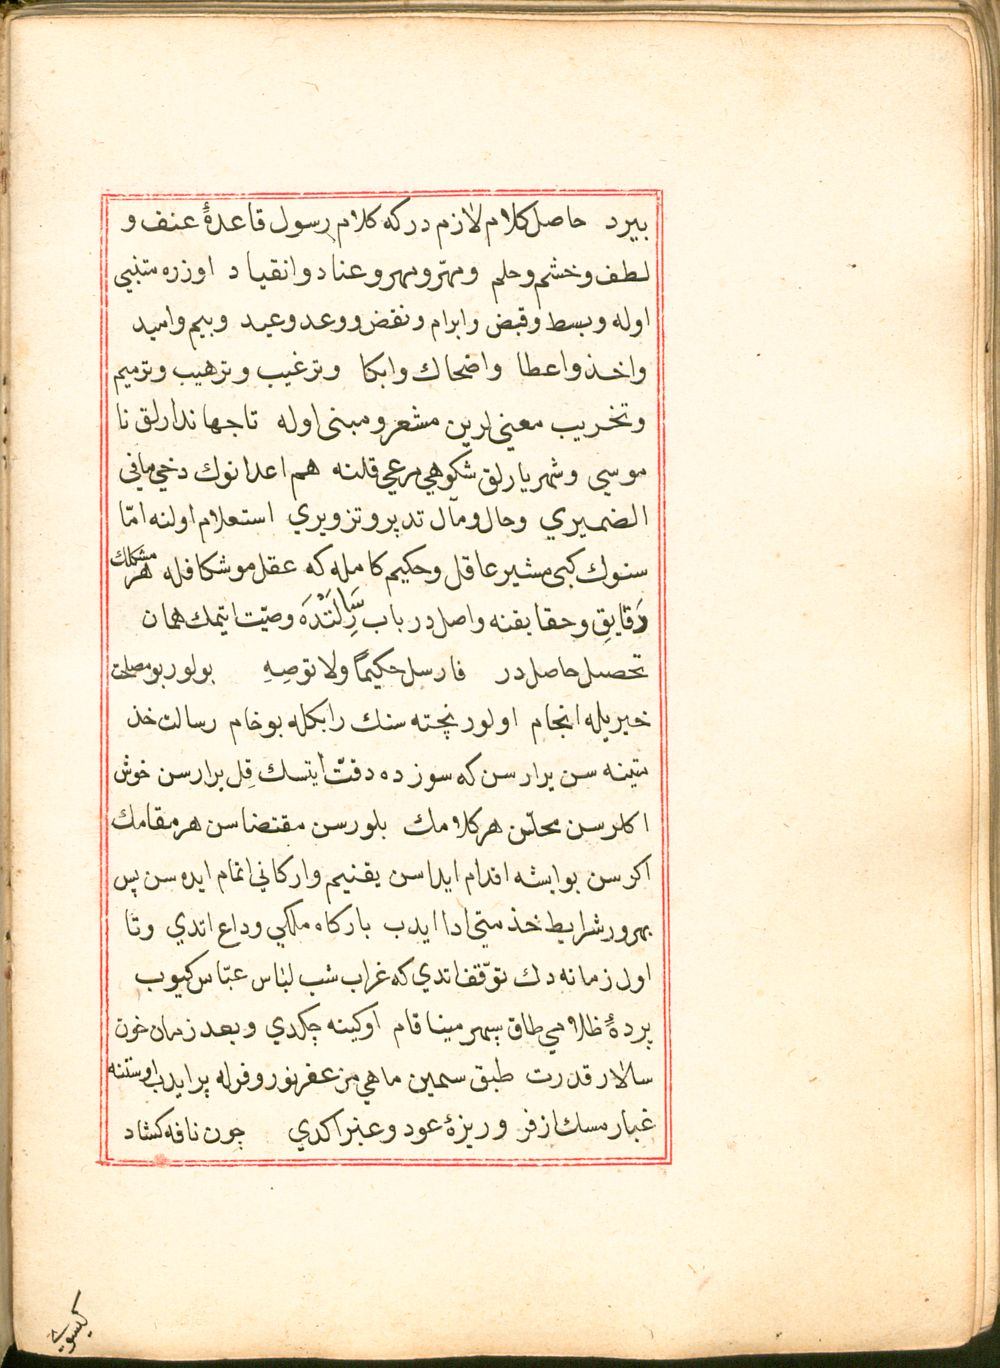 بيرد حاصل كلام لازم در كه كلام رسول قاعدۀ عنف و
لطف و خشم و حلم و مهر و عناد و انقياد اوزره متنبي
اوله و بسط و قبض و ابرام و نقض و وعد وعيد وبيم واميد
واخذ واعطا واضحاك وابكا وترغيب وترهيب وترميم
وتخريب معنيلرين مشعر ومبنى اوله تا جهاندارلق نا
موسي وشهريارلق شكوهي مرعي قلنه هم اعدانوك دخي مافي
الضميري وحال ومآل تدبير وتزويري استعلام اولنه امّا
سنوك كبى مشير عاقل وحكيم كامله كه عقل موشكافله هر مشكلك
دَقايقِ وحقايقنه واصلدر باب رِسَالَتْدَه وصيّت ايتمك همان
تحصيل حاصل در فارسل حكيمًا ولا توصِهِ بولور بو مصلحت
خيريله انجام اولور پخته سنك رايكله بو خام رسالت خذ
متينه سن يرارسن كه سوزده دقّت ايتسك قِل يرارسن خوش
اكلرسن محلّن هر كلامك بلورسن مقتضاسن هر مقامك
اكر سن بو ايشه اقدام ايداسن يقنيم واركاني اتمام ايده سن پس
بهرور شرايط خذمتي ادا ايدب باركاه ملكي وداع اتدي وتا
اول زمانه دك توّقف اتدي كه غراب شب لباس عبّاس كيوب
پردۀ ظلامي طاق سپهر مينا فام اوكينه چكدي وبعد زمان خون
سالار قدرت طبق سيمين ماهي مزعفر نور وفرله پر ايدب اوستنه
غبار مسك ازفر وريزۀ عود وعنبر اكدي چون نافه كشاد
كيسوى